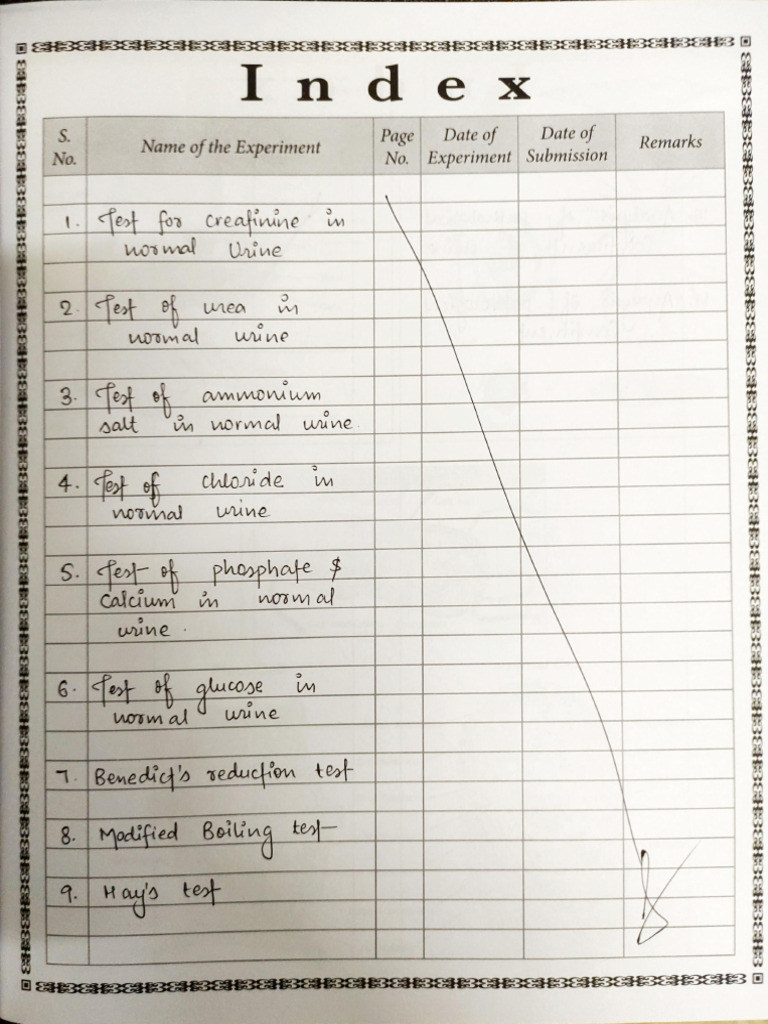 Index
S. No. Name of the Experiment Page No. Date of Experiment Date of Submission Remarks
1. Test for creatinine in
normal Urine
2. Test of urea in
normal urine
3. Test of ammonium
salt in normal urine.
4. Test of chloride in
normal urine
5. Test of phosphate &
Calcium in normal
urine.
6. Test of glucose in
normal urine
7. Benedict's reduction test
8. Modified Boiling test
9. Hay's test